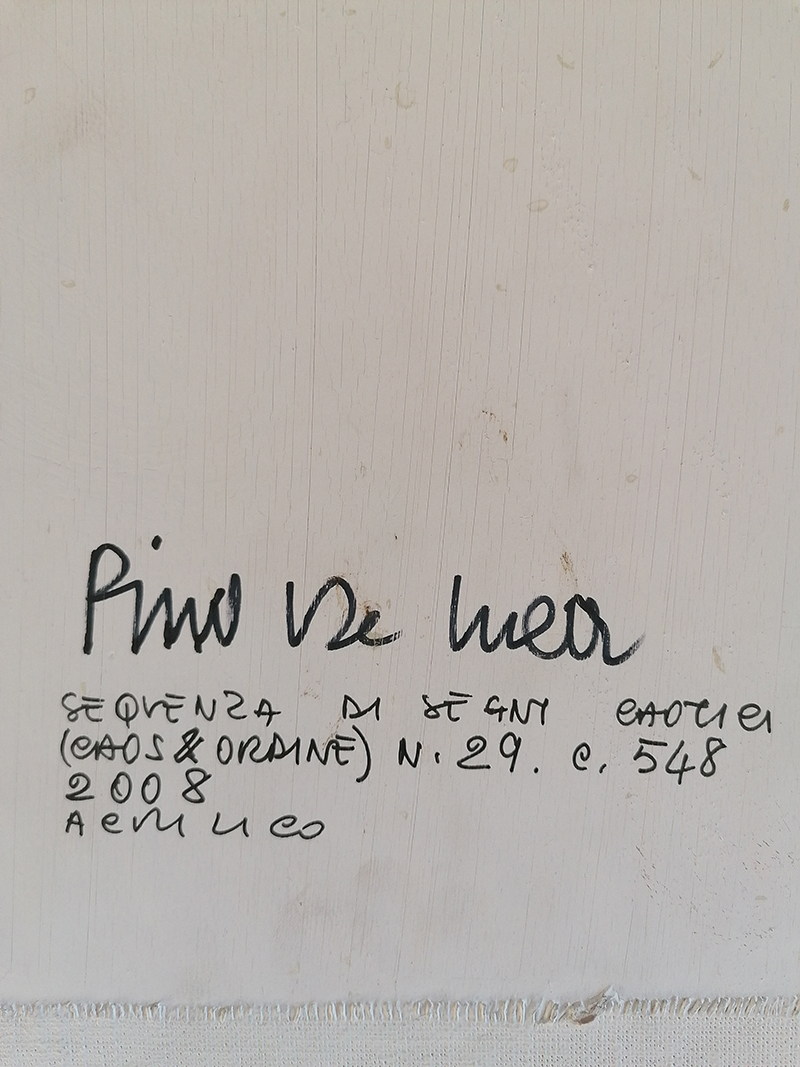 Pino De Luca
SEQUENZA DI SEGNI CAOTICI
(CAOS & ORDINE) N. 29. C. 548
2008
ACRILICO